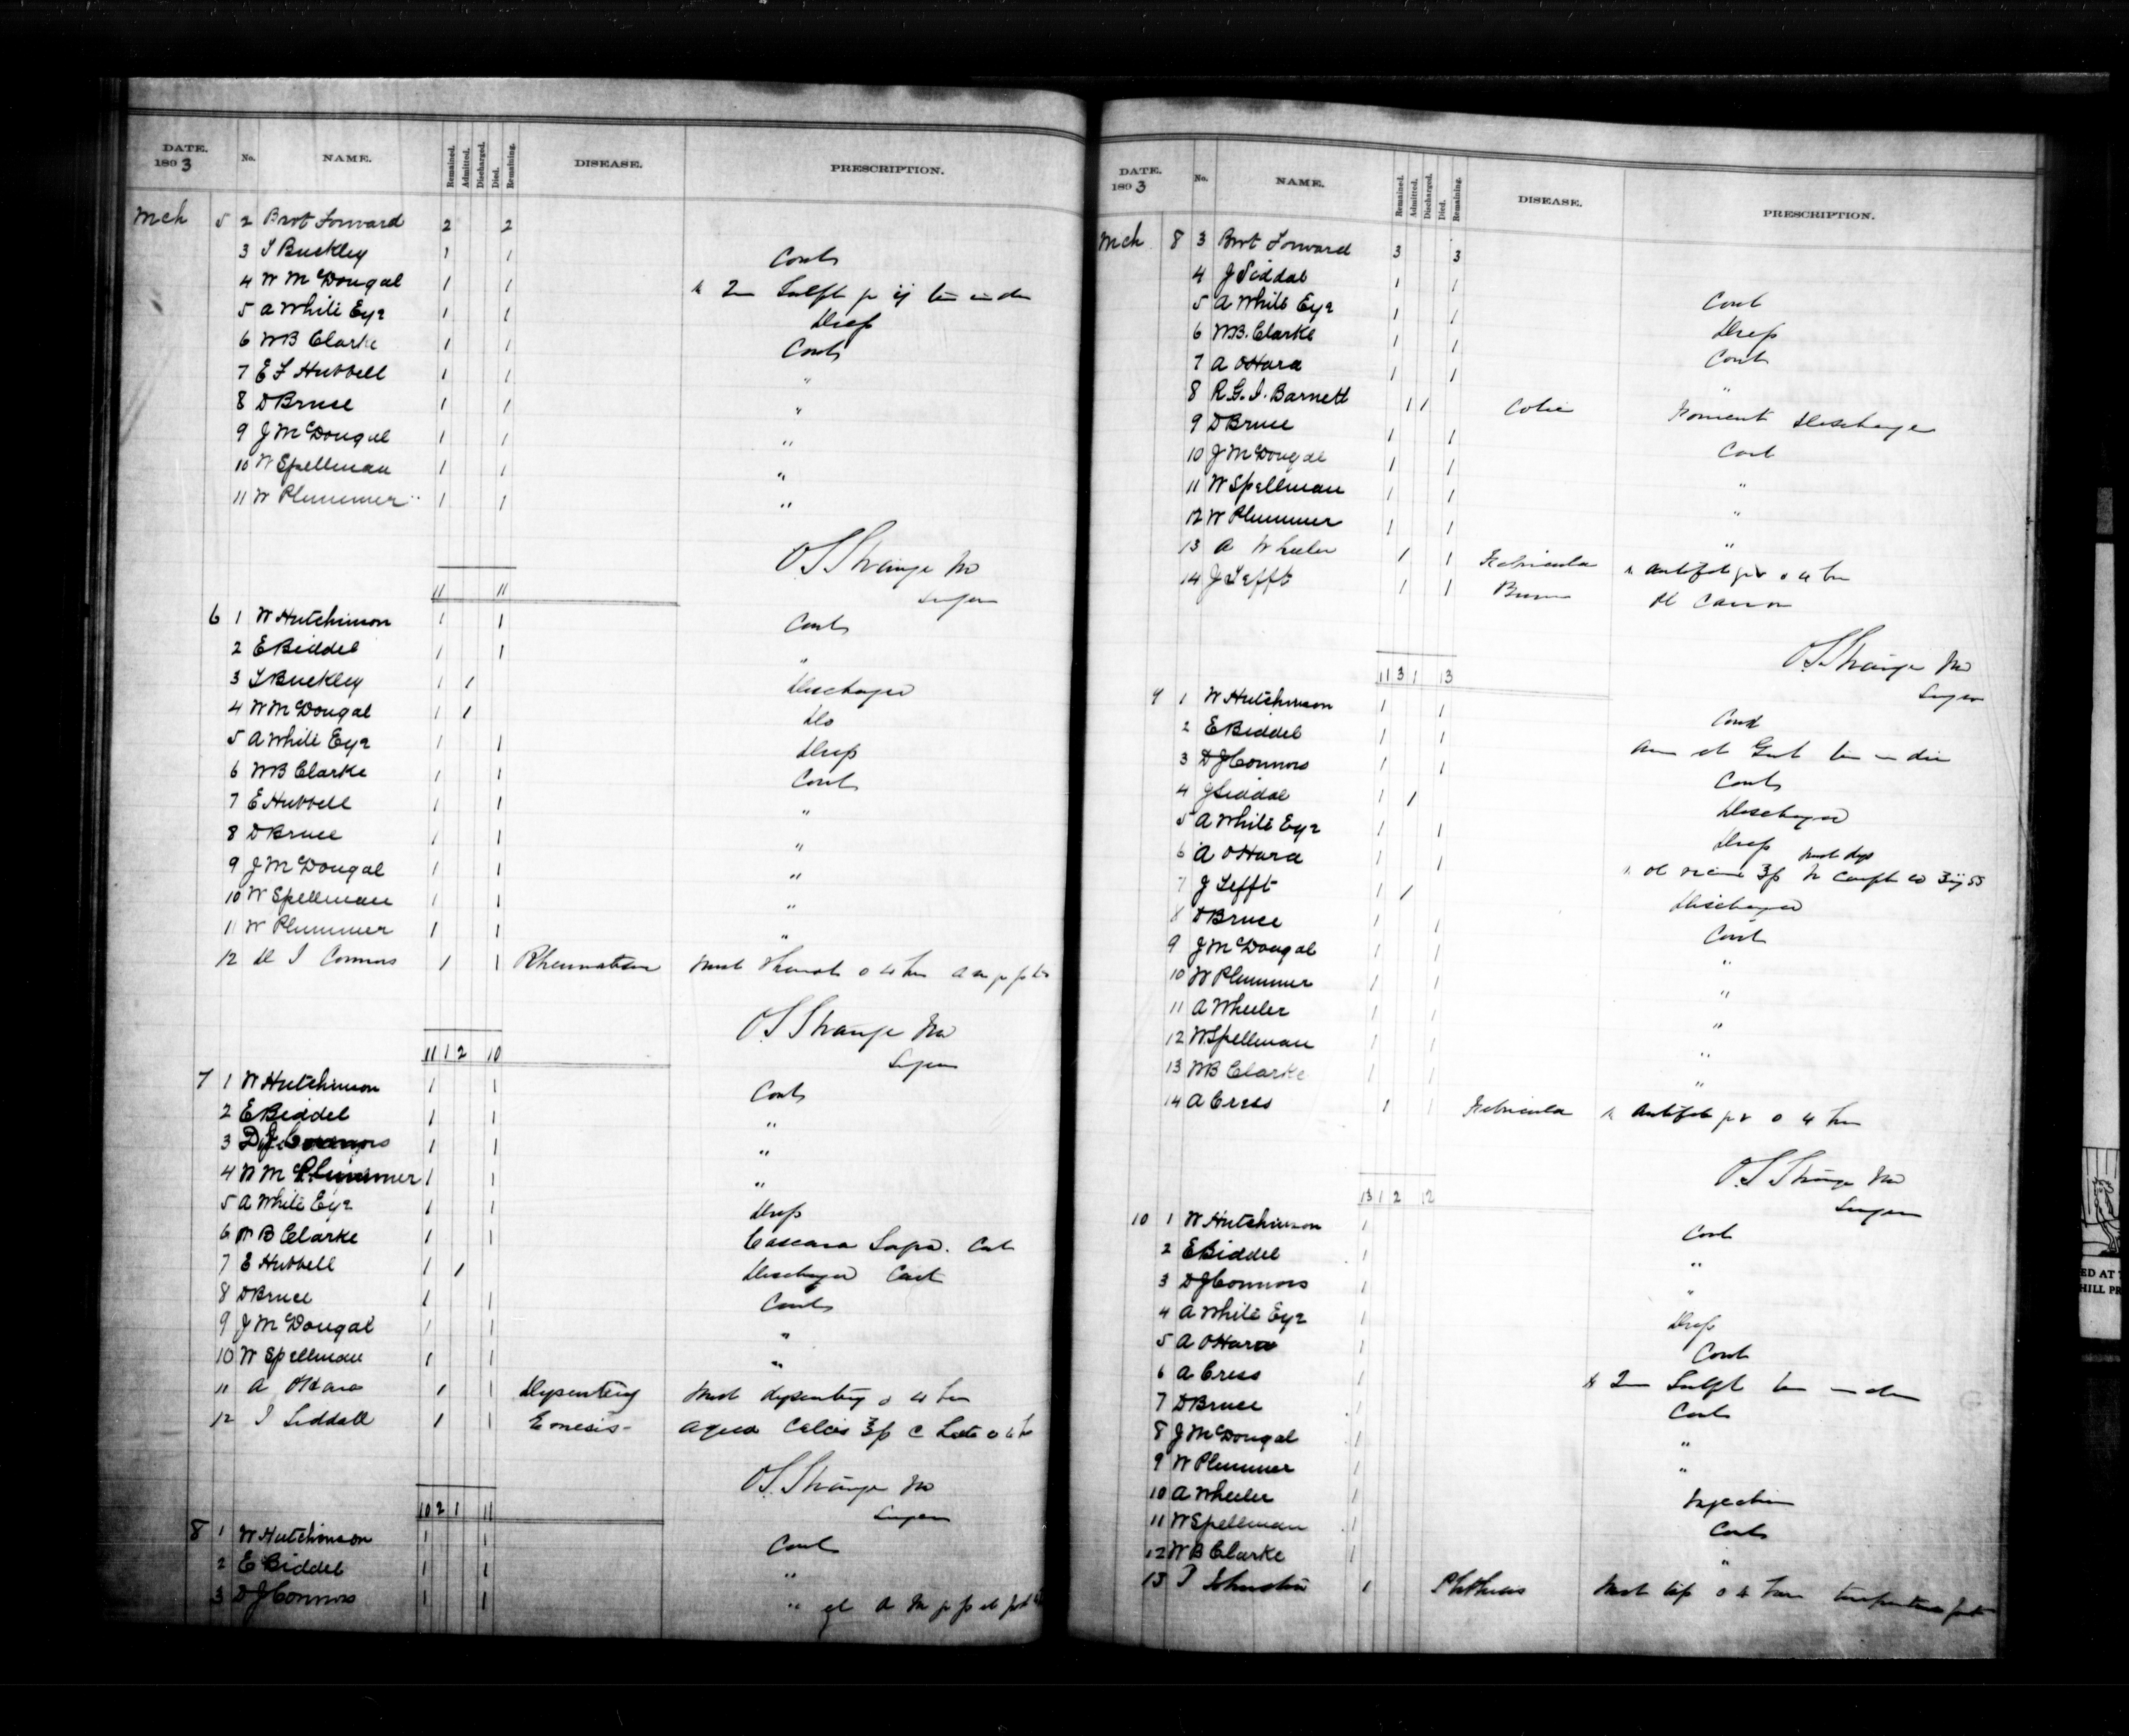 DATE. 1893 No. NAME. Remained. Admitted. Discharged. Died. Remaining. DISEASE. PRESCRIPTION.
Mch 5 2 Brot Forward 2 2
3 T Buckley 1 1 Cont
4 W McDougal 1 1 Sulph
5 A White Eye 1 1 Drop
6 WB Clarke 1 1 Cont
7 E F Hubbell 1 1 "
8 D Bruce 1 1 "
9 J McDougal 1 1 "
10 W Spellman 1 1 "
11 W Plummer 1 1 "
O S Strange MD
Surgeon
11 11
6 1 W Hutchinson 1 1 Cont
2 E Biddel 1 1 "
3 T Buckley 1 1 Discharged
4 W McDougal 1 1 Do
5 A White Eye 1 1 Drop
6 WB Clarke 1 1 Cont
7 E Hubbell 1 1 "
8 D Bruce 1 1 "
9 J McDougal 1 1 "
10 W Spellman 1 1 "
11 W Plummer 1 1 "
12 D J Connors 1 1 Rheumatism Mist Rheumat
O S Strange MD
Surgeon
11 1 2 10
7 1 W Hutchinson 1 1 Cont
2 E Biddel 1 1 "
3 DJ Connors 1 1 "
4 W M Plummer 1 1 "
5 A White Eye 1 1 Drop
6 W B Clarke 1 1 Cascara Sagra. Cont
7 E Hubbell 1 1 Discharged Cont
8 D Bruce 1 1 Cont
9 J McDougal 1 1 "
10 W Spellman 1 1 "
11 A O'Hara 1 1 Dysentery Mist dysentery
12 J Siddall 1 1 Emesis Aqua Calcis
O.S. Strange MD
Surgeon
10 2 1 11
8 1 W Hutchinson 1 1 Cont
2 E Biddel 1 1 "
3 DJ Connors 1 1 "
DATE. 1893 No. NAME. Remained. Admitted. Discharged. Died. Remaining. DISEASE. PRESCRIPTION.
Mch 8 3 Brot Forward 3 3
4 J Siddal 1 1 Cont
5 A White Eye 1 1 Drop
6 W.B. Clarke 1 1 Cont
7 A O'Hara 1 1 "
8 R.G.I. Barnett 1 1 Colic Foment Discharge
9 D Bruce 1 1 Cont
10 J McDougal 1 1 "
11 W Spellman 1 1 "
12 W Plummer 1 1 "
13 A Wheeler 1 1 Febricula Antifeb
14 J Tefft 1 1 Burn Ol Carron
O.S. Strange MD
Surgeon
11 3 1 13
9 1 W Hutchinson 1 1 Cont
2 E Biddel 1 1
3 DJ Connors 1 1 Cont
4 J Siddal 1 1 Discharged
5 A White Eye 1 1 Drop
6 A O'Hara 1 1 Mist dys
7 J Tefft 1 1 Discharged
8 D Bruce 1 1 Cont
9 J McDougal 1 1 "
10 W Plummer 1 1 "
11 A Wheeler 1 1 "
12 W Spellman 1 1 "
13 WB Clarke 1 1 "
14 A Cress 1 1 Febricula Antifeb
O.S Strange MD
Surgeon
13 1 2 12
10 1 W Hutchinson 1 Cont
2 E Biddel 1 "
3 DJ Connors 1 "
4 A White Eye 1 Drop
5 A O'Hara 1 Cont
6 A Cress 1 Sulph
7 D Bruce 1 Cont
8 J McDougal 1 "
9 W Plummer 1 "
10 A Wheeler 1 Injection
11 W Spellman 1 Cont
12 W B Clarke 1 "
13 Johnston 1 Phthisis Mist
ED AT
HILL PR